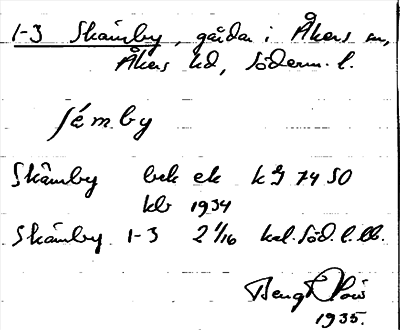 1-3 Skämby, gårdar i Åkers sn,
Åkers hd, Söderm. l.
sé̀m.by
Skämby bek ek kg 74 50
kb 1934
Skämby 1-3 2 1/16 kal. Söd. l. lb.
Bengt
1935.